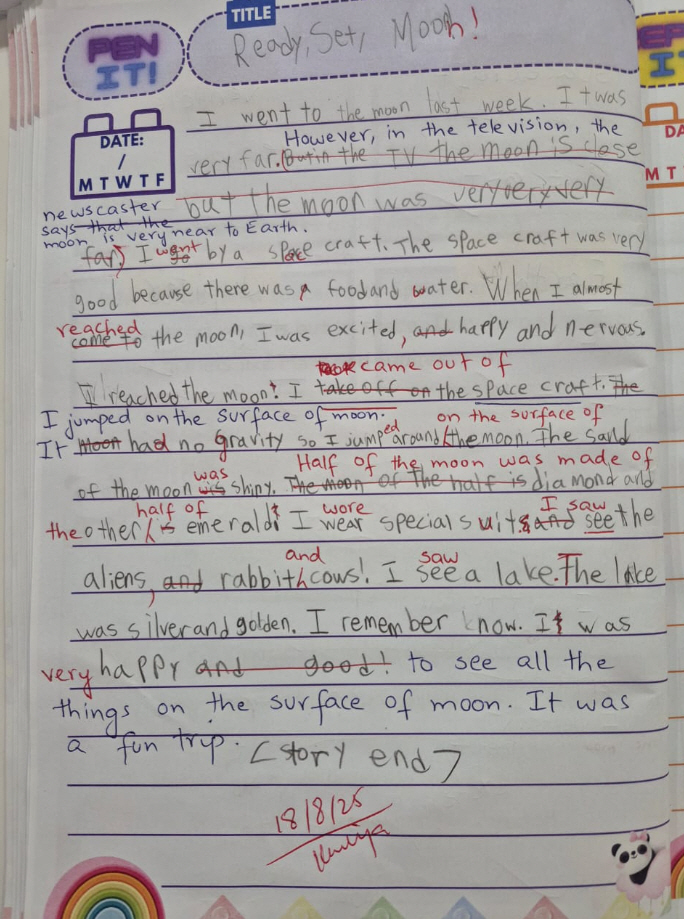 TITLE
PEN IT!
Ready, Set, Moon!
I went to the moon last week. It was
DATE:
/
M T W T F
However, in the television, the
very far. But in the TV the moon is close
but the moon was very very very
newscaster
says that the
moon is very near to Earth.
far, I went go by a space craft. The space craft was very
good because there was a food and water. When I almost
reached
come to the moon, I was excited, and happy and nervous.
took came out of
I reached the moon! I take off on the space craft. The
I jumped on the surface of moon. on the surface of
It moon had no gravity so I jumped around the moon. The sand
was Half of the moon was made of
of the moon is shiny. The moon of the half is diamond and
half of wore I saw
the other is emerald! I wear special suits and see the
and saw
aliens, and rabbit cows! I see a lake. The lake
was silver and golden. I remember know. It was
very happy and good! to see all the
things on the surface of moon. It was
a fun trip. <story end>
18/8/25
DA
M T